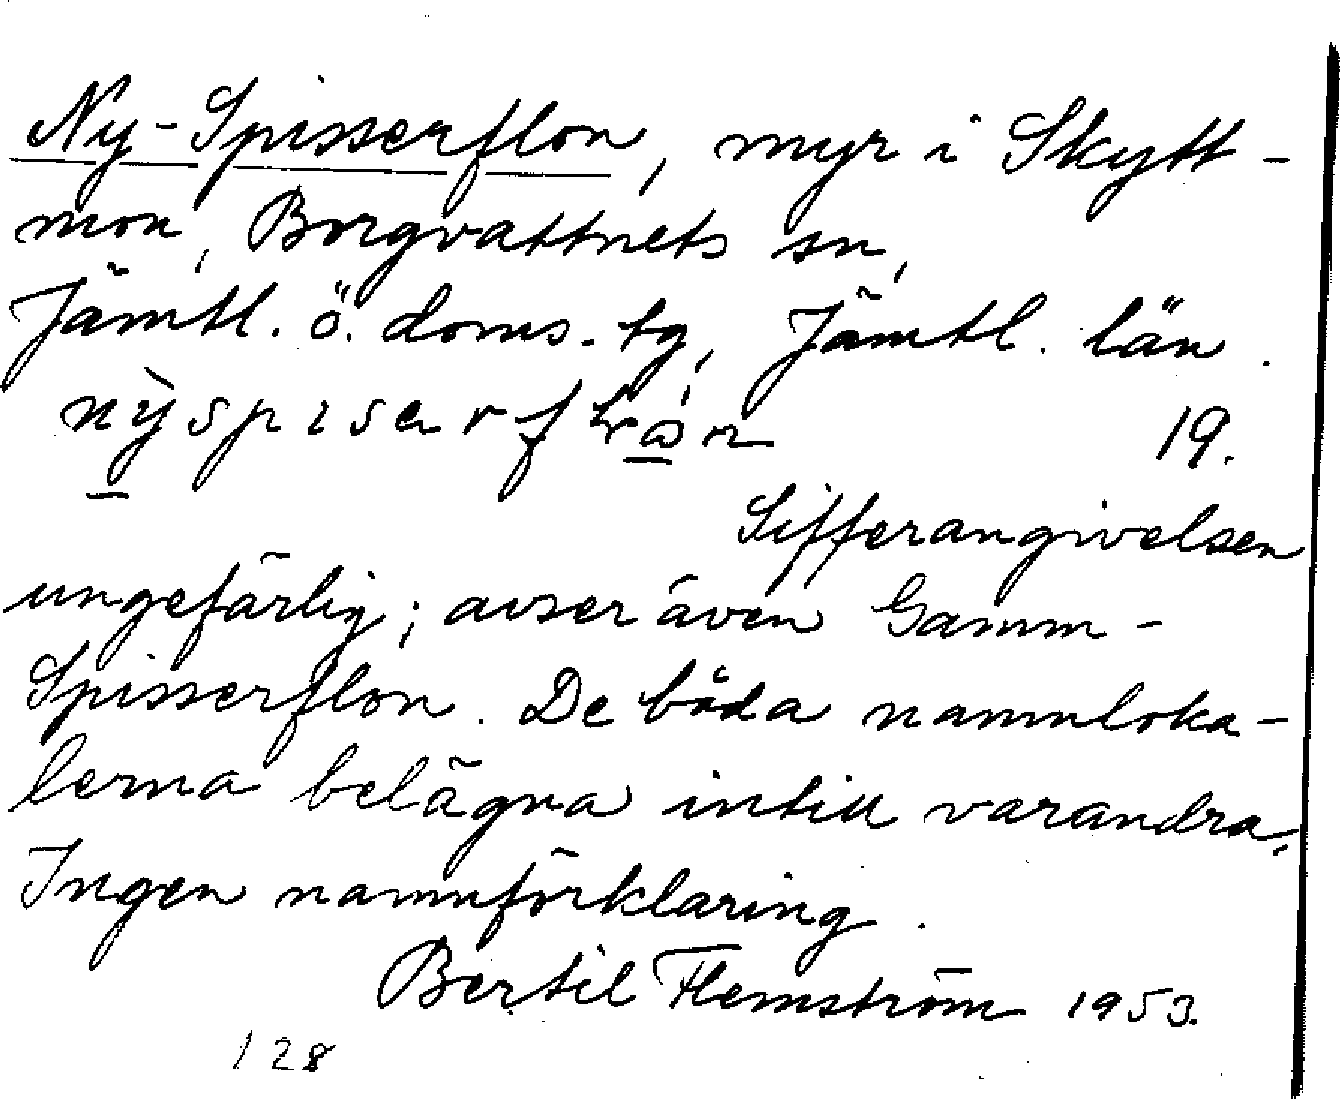 Ny-Spisserflon, myr i Skytt-
mon, Borgvattnets sn,
Jämtl. ö. doms. tg, Jämtl. län.
19.
Sifferangivelsen
ungefärlig; avser även Gamm-
Spisserflon. De båda namnloka-
lerna belägna intill varandra.
Ingen namnförklaring.
Bertil Flemström 1953.
128